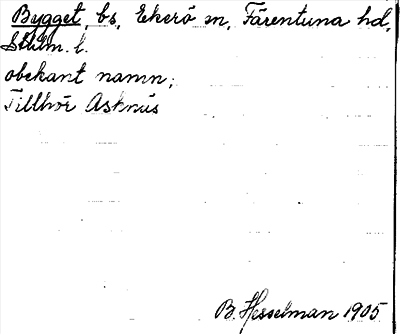 Bygget, bs, Ekerö sn, Färentuna hd,
Sthlm. l.
obekant namn;
Tillhör Asknäs
B. Hesselman 1905